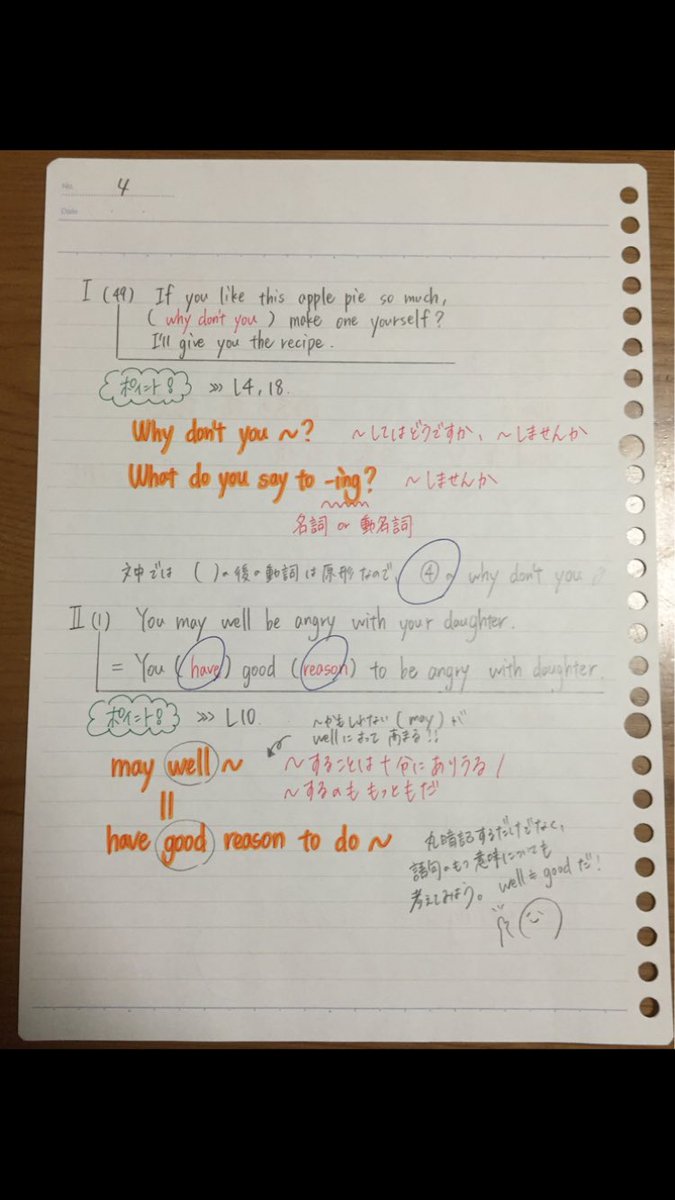 No. 4
Date
I (49) If you like this apple pie so much,
( why don't you ) make one yourself?
I'll give you the recipe.
ポイント! >>> L4, 18.
Why don't you ~? ~してはどうですか、~しませんか
What do you say to -ing? ~しませんか
名詞 or 動名詞
文中では ( )の後の動詞は原形なので、④の why don't you
II (1) You may well be angry with your daughter.
= You (have) good (reason) to be angry with daughter.
ポイント! >>> L10.
~かもしれない (may) が
wellによって高まる!!
may well ~ ~することは十分にありうる/
~するのももっともだ
||
have good reason to do ~
丸暗記するだけでなく、
語句のもつ意味についても
考えてみよう。 wellもgoodだ!